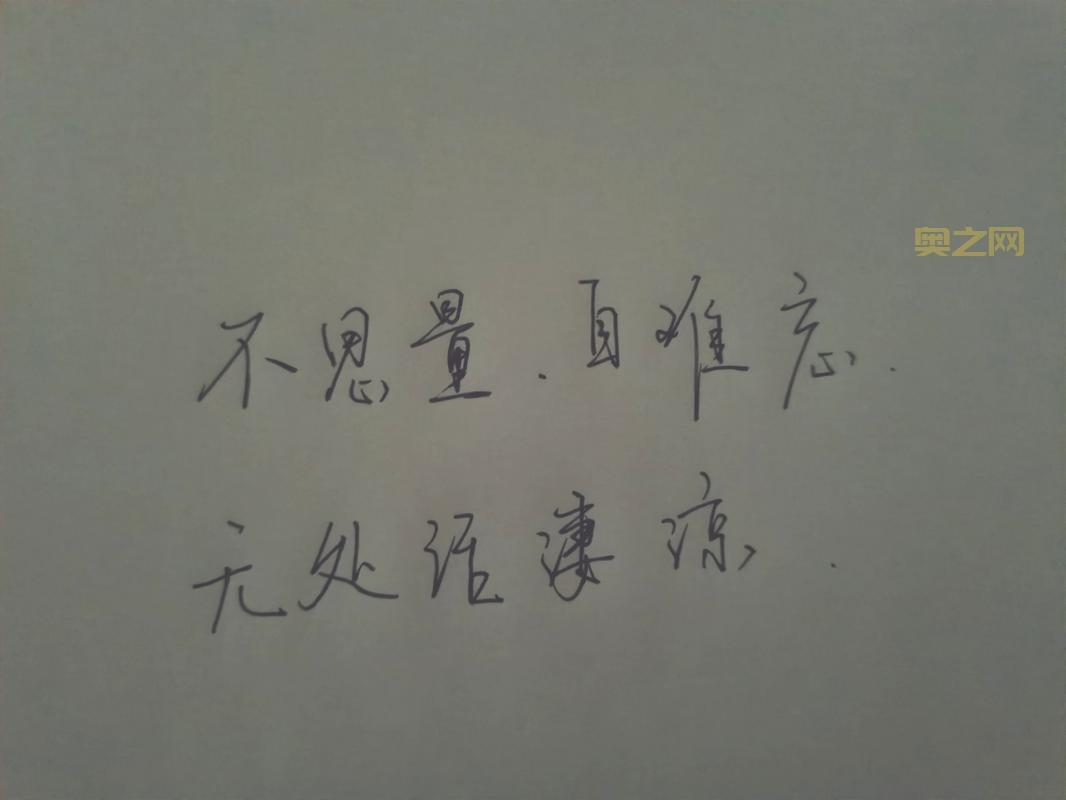 奥之网
不思量.自难忘.
无处话凄凉.